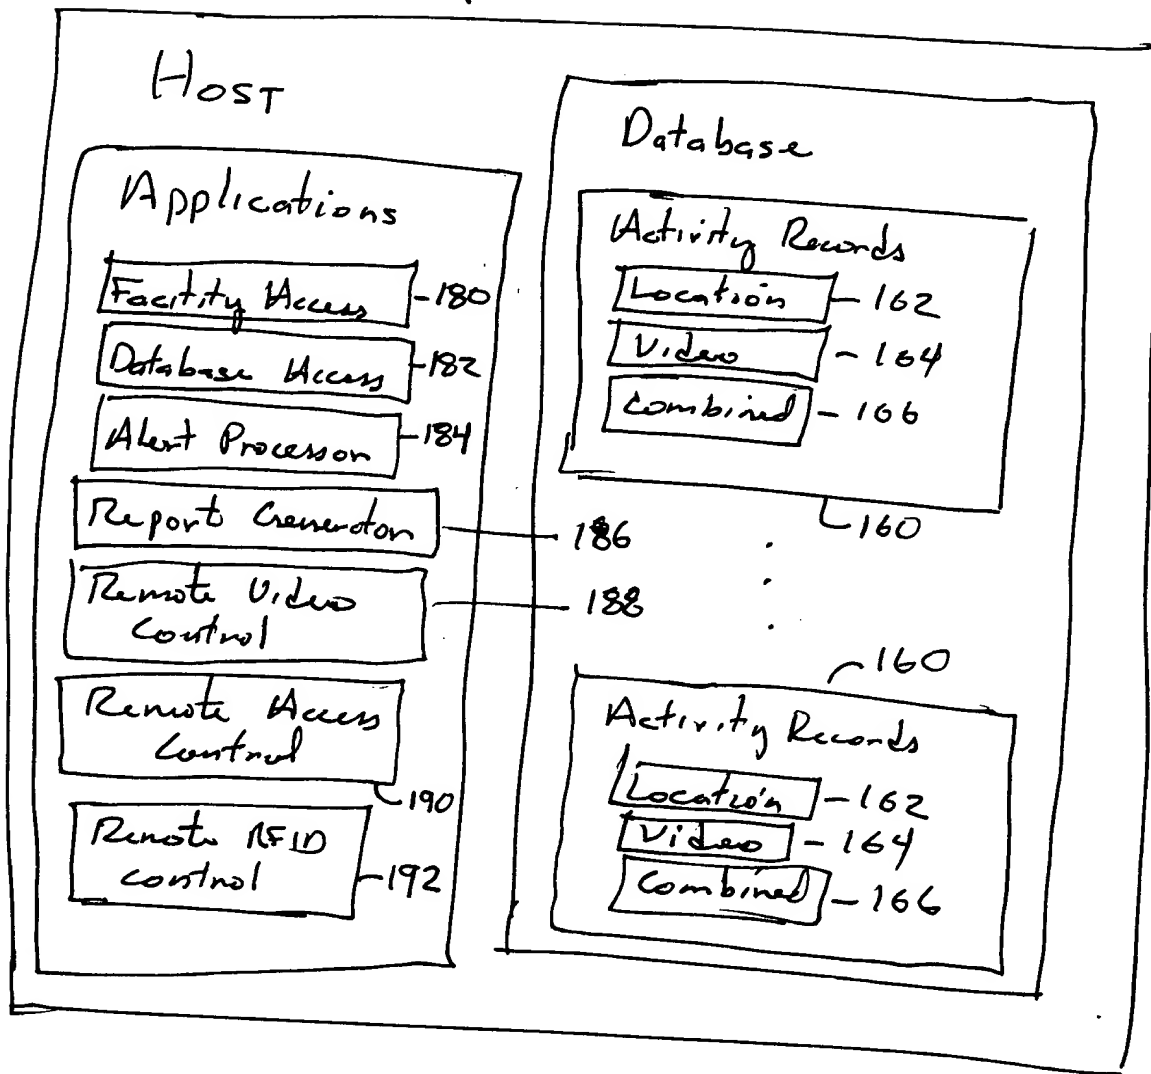 Host
Applications
Facility Access - 180
Database Access - 182
Alert Processor - 184
Report Generator - 186
Remote Video
Control - 188
Remote Access
Control
190
Remote RFID
control - 192
Database
Activity Records
Location - 162
Video - 164
Combined - 166
160
160
Activity Records
Location - 162
Video - 164
Combined - 166